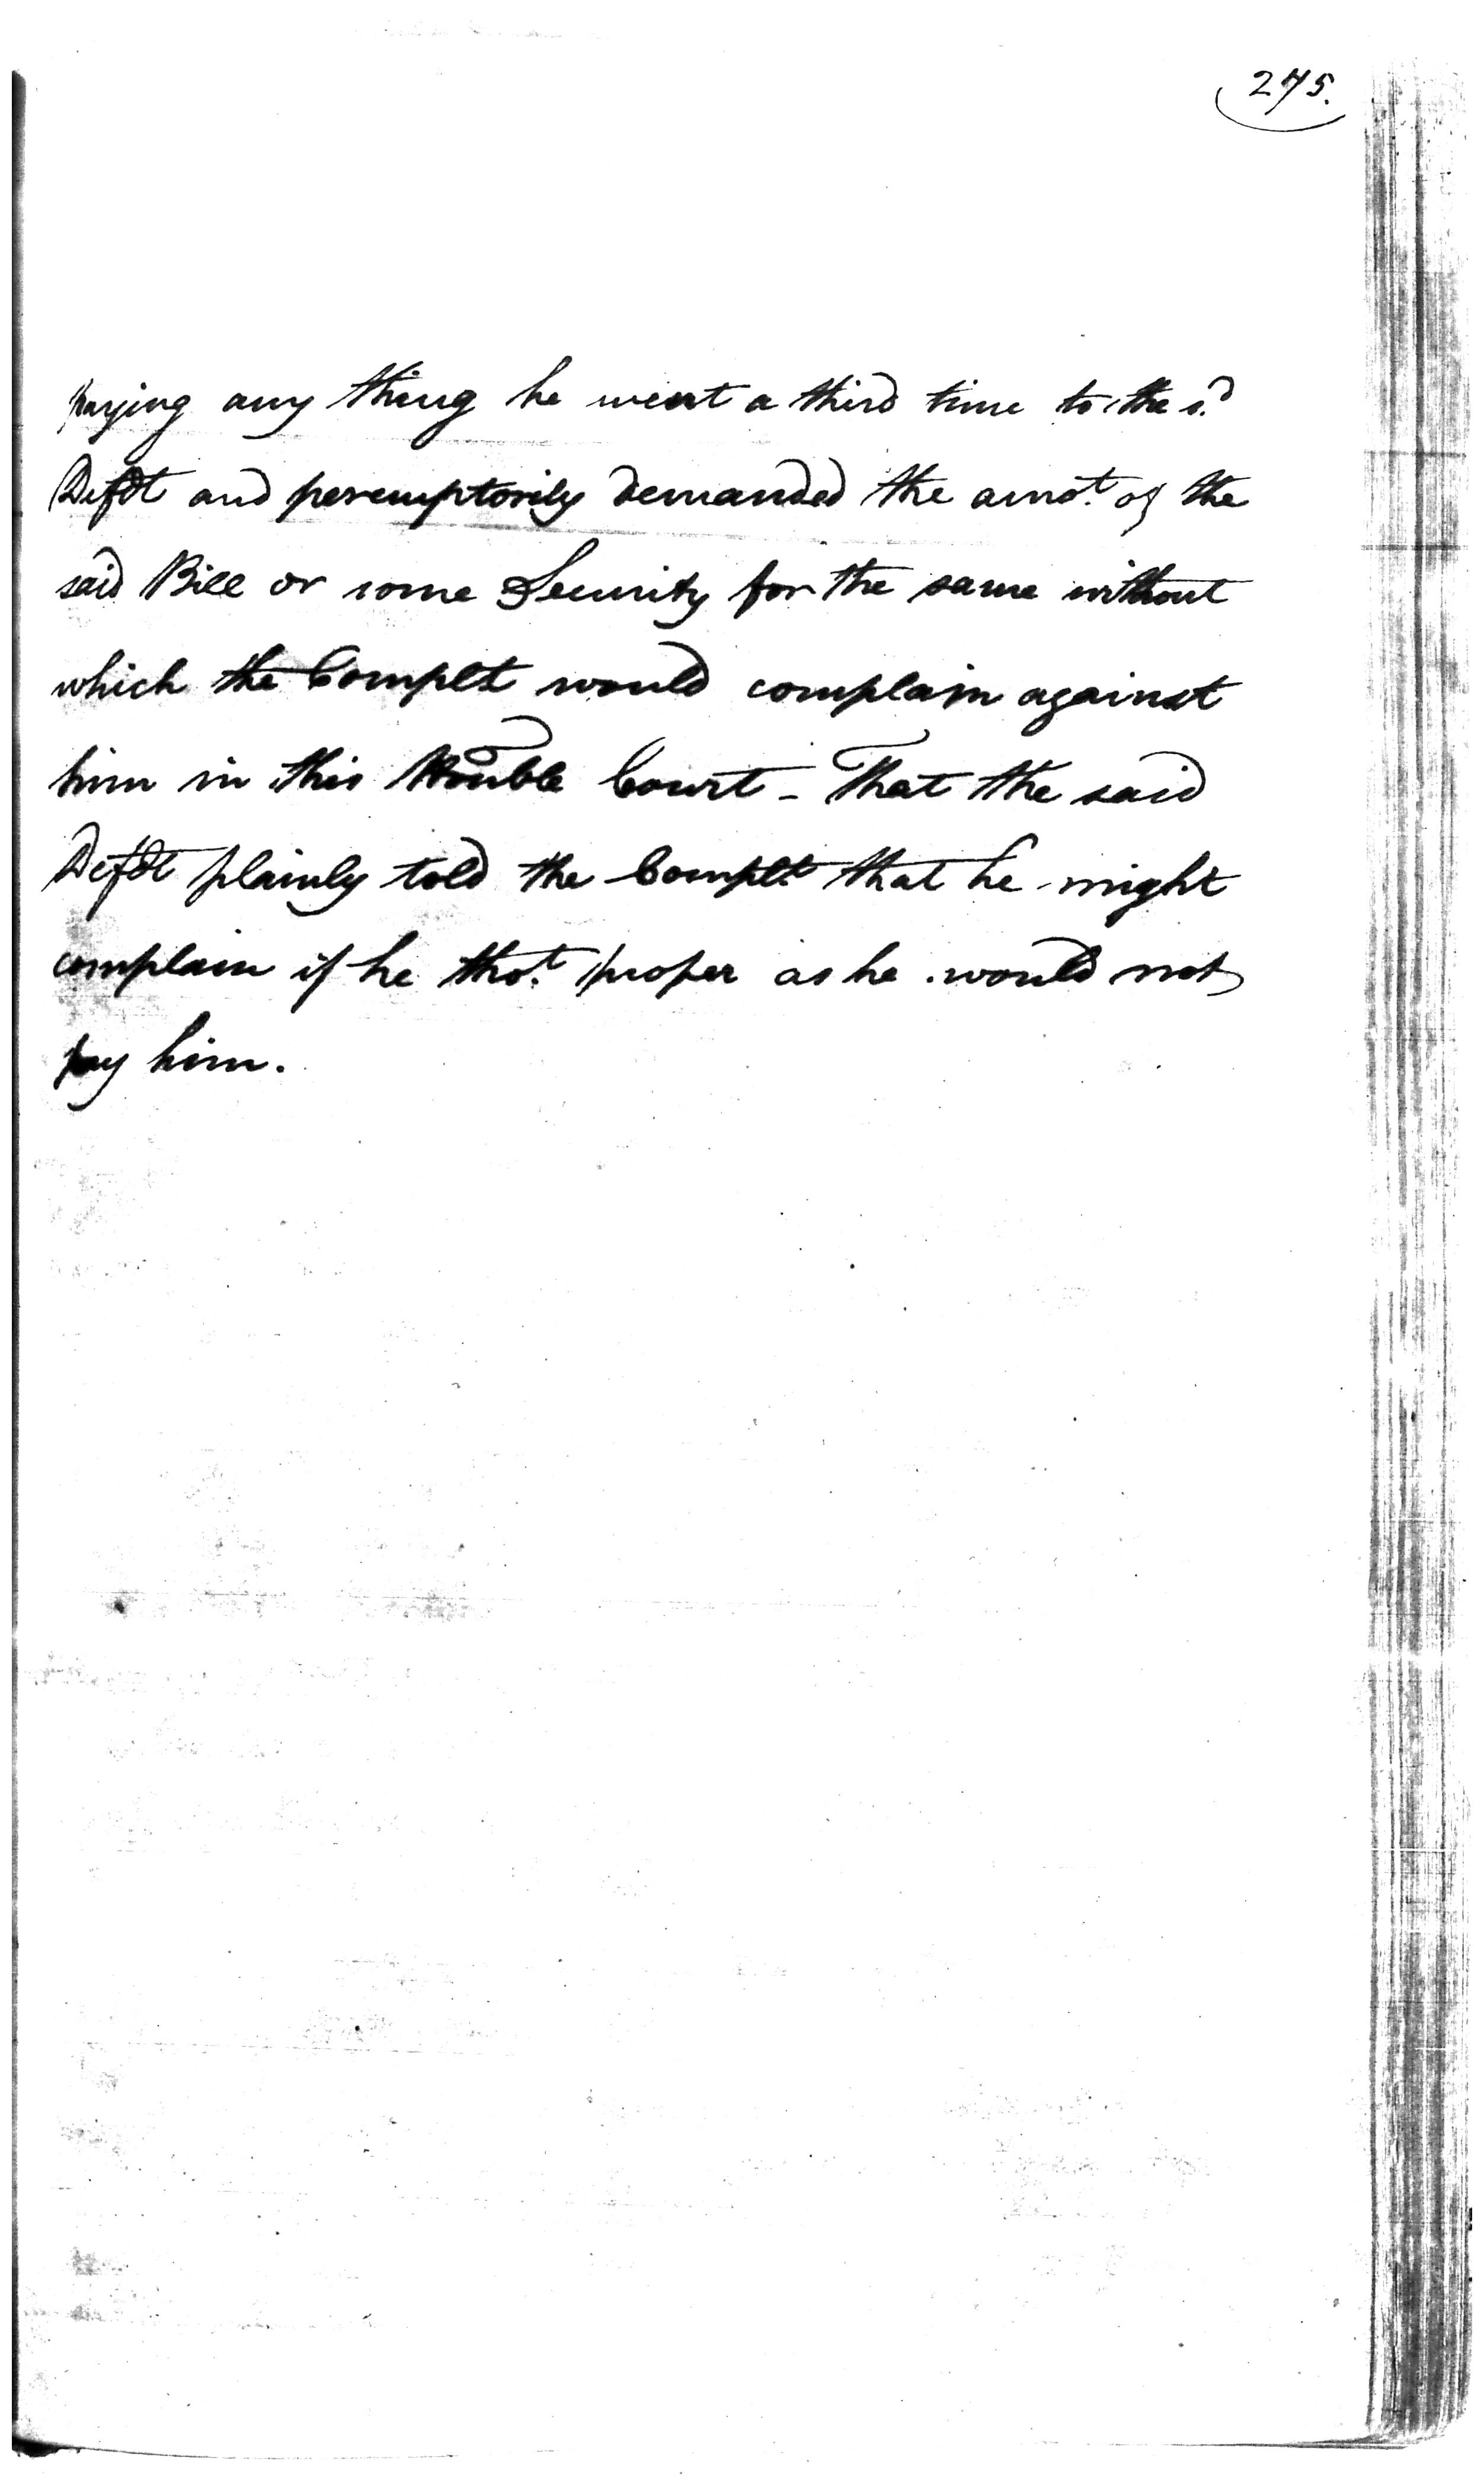 275.
paying any thing he went a third time to the s.d
Defdt and peremptorily demanded the amot. of the
said Bill or some Security for the same without
which the Complt would complain against
him in this Honble Court - That the said
Defdt plainly told the Complt that he might
complain if he thot. proper as he would not
pay him.